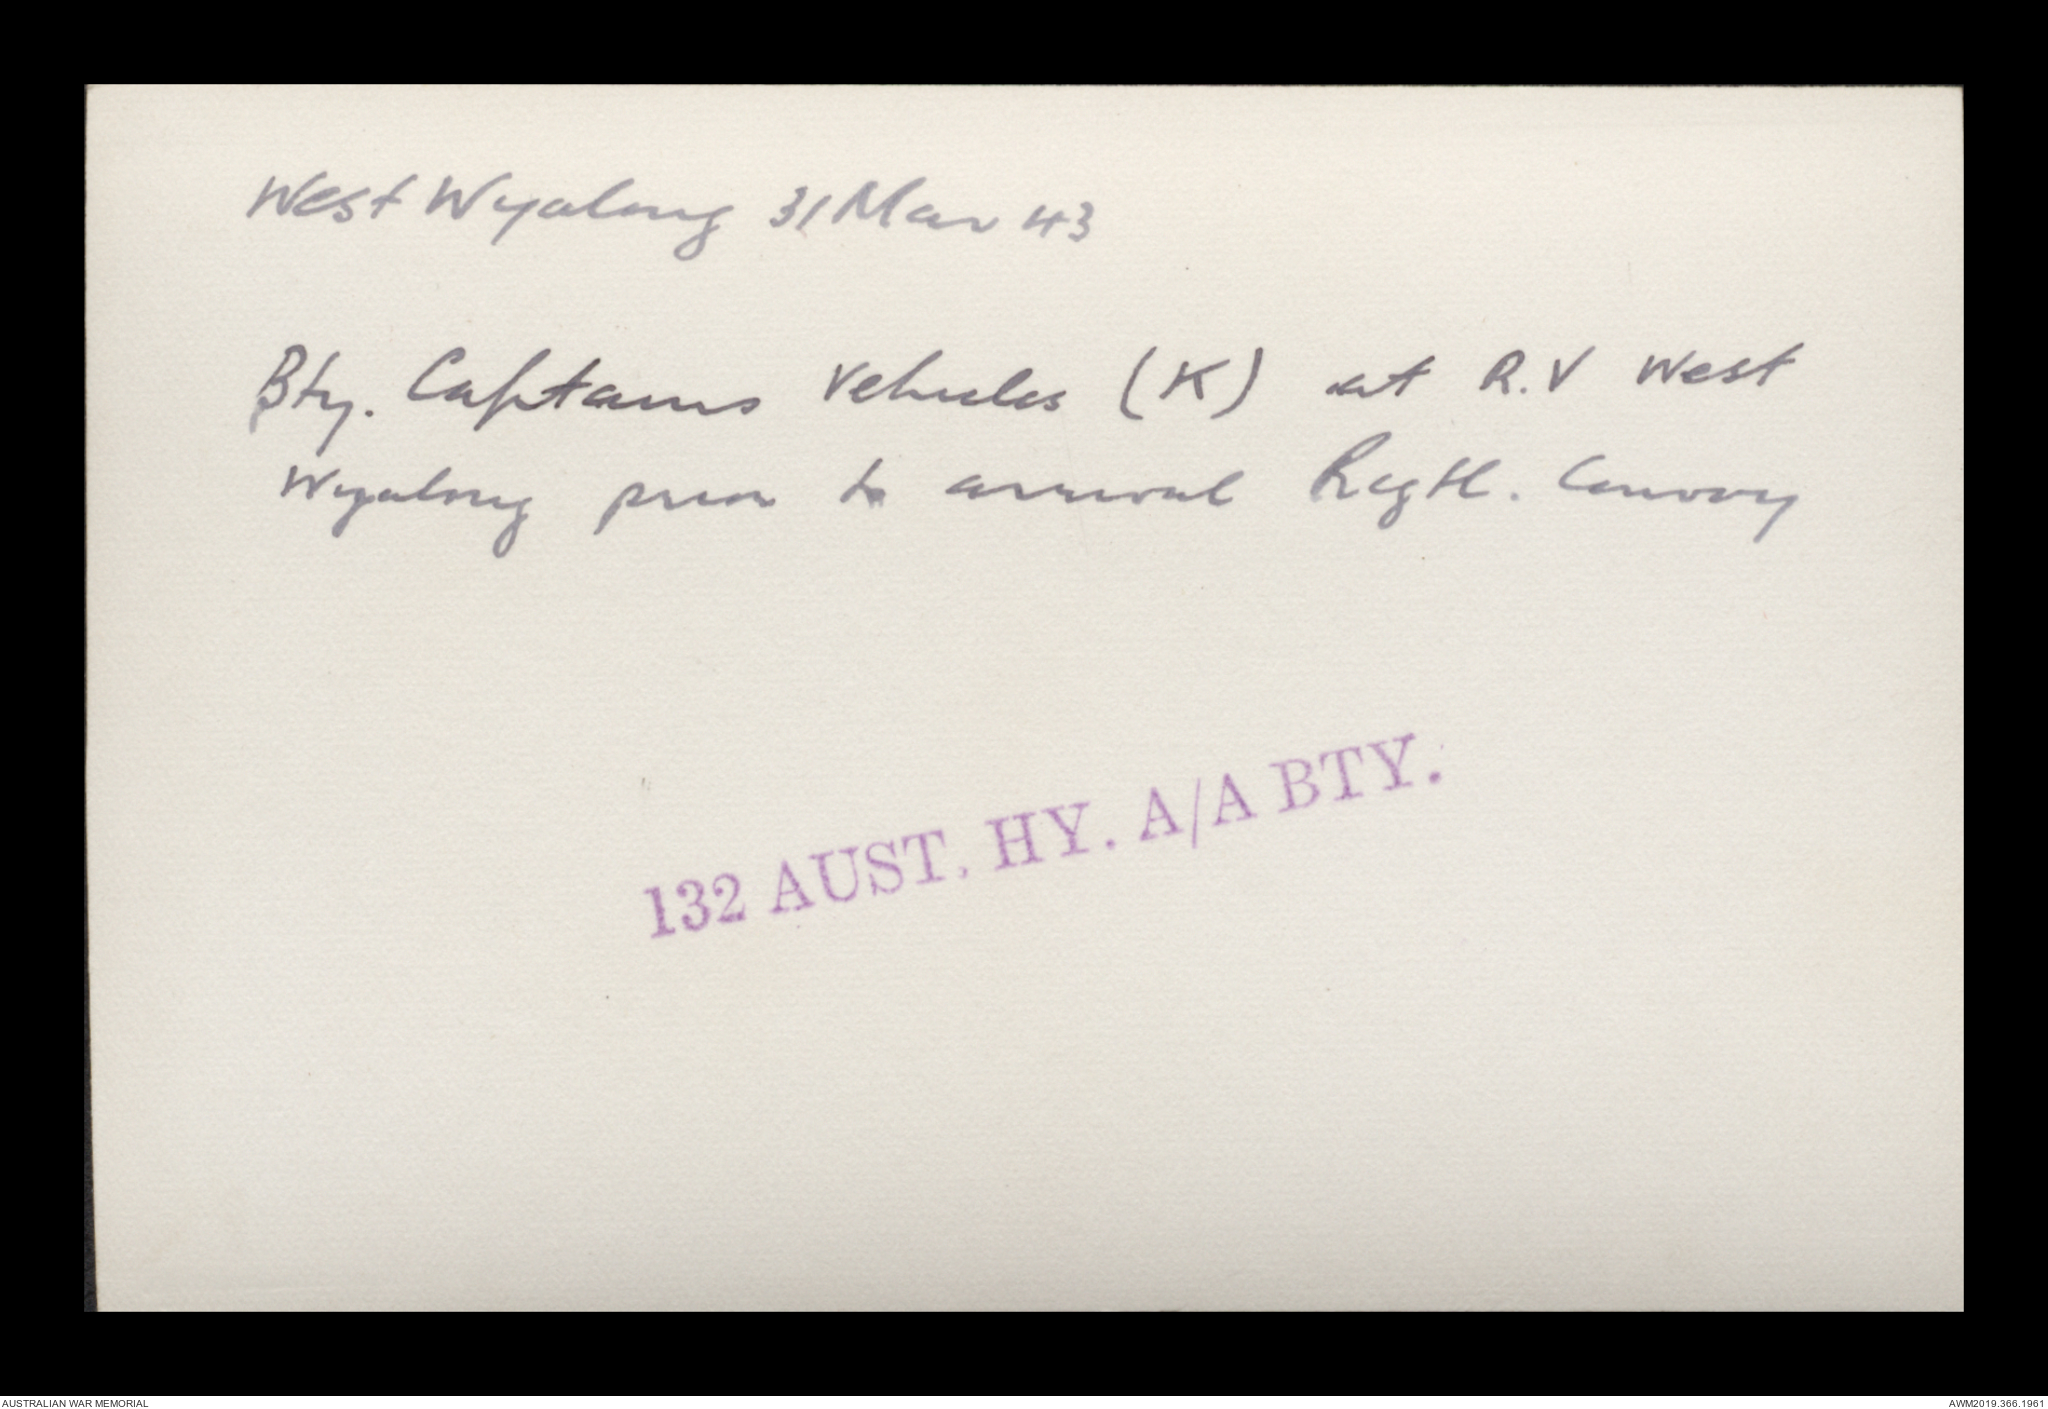 West Wyalong 31 Mar 43
Bty. Captains Vehicles (K) at R.V West
Wyalong prior to arrival Regtl. Convoy
132 AUST. HY. A/A BTY.
AUSTRALIAN WAR MEMORIAL
AWM2019.366.1961